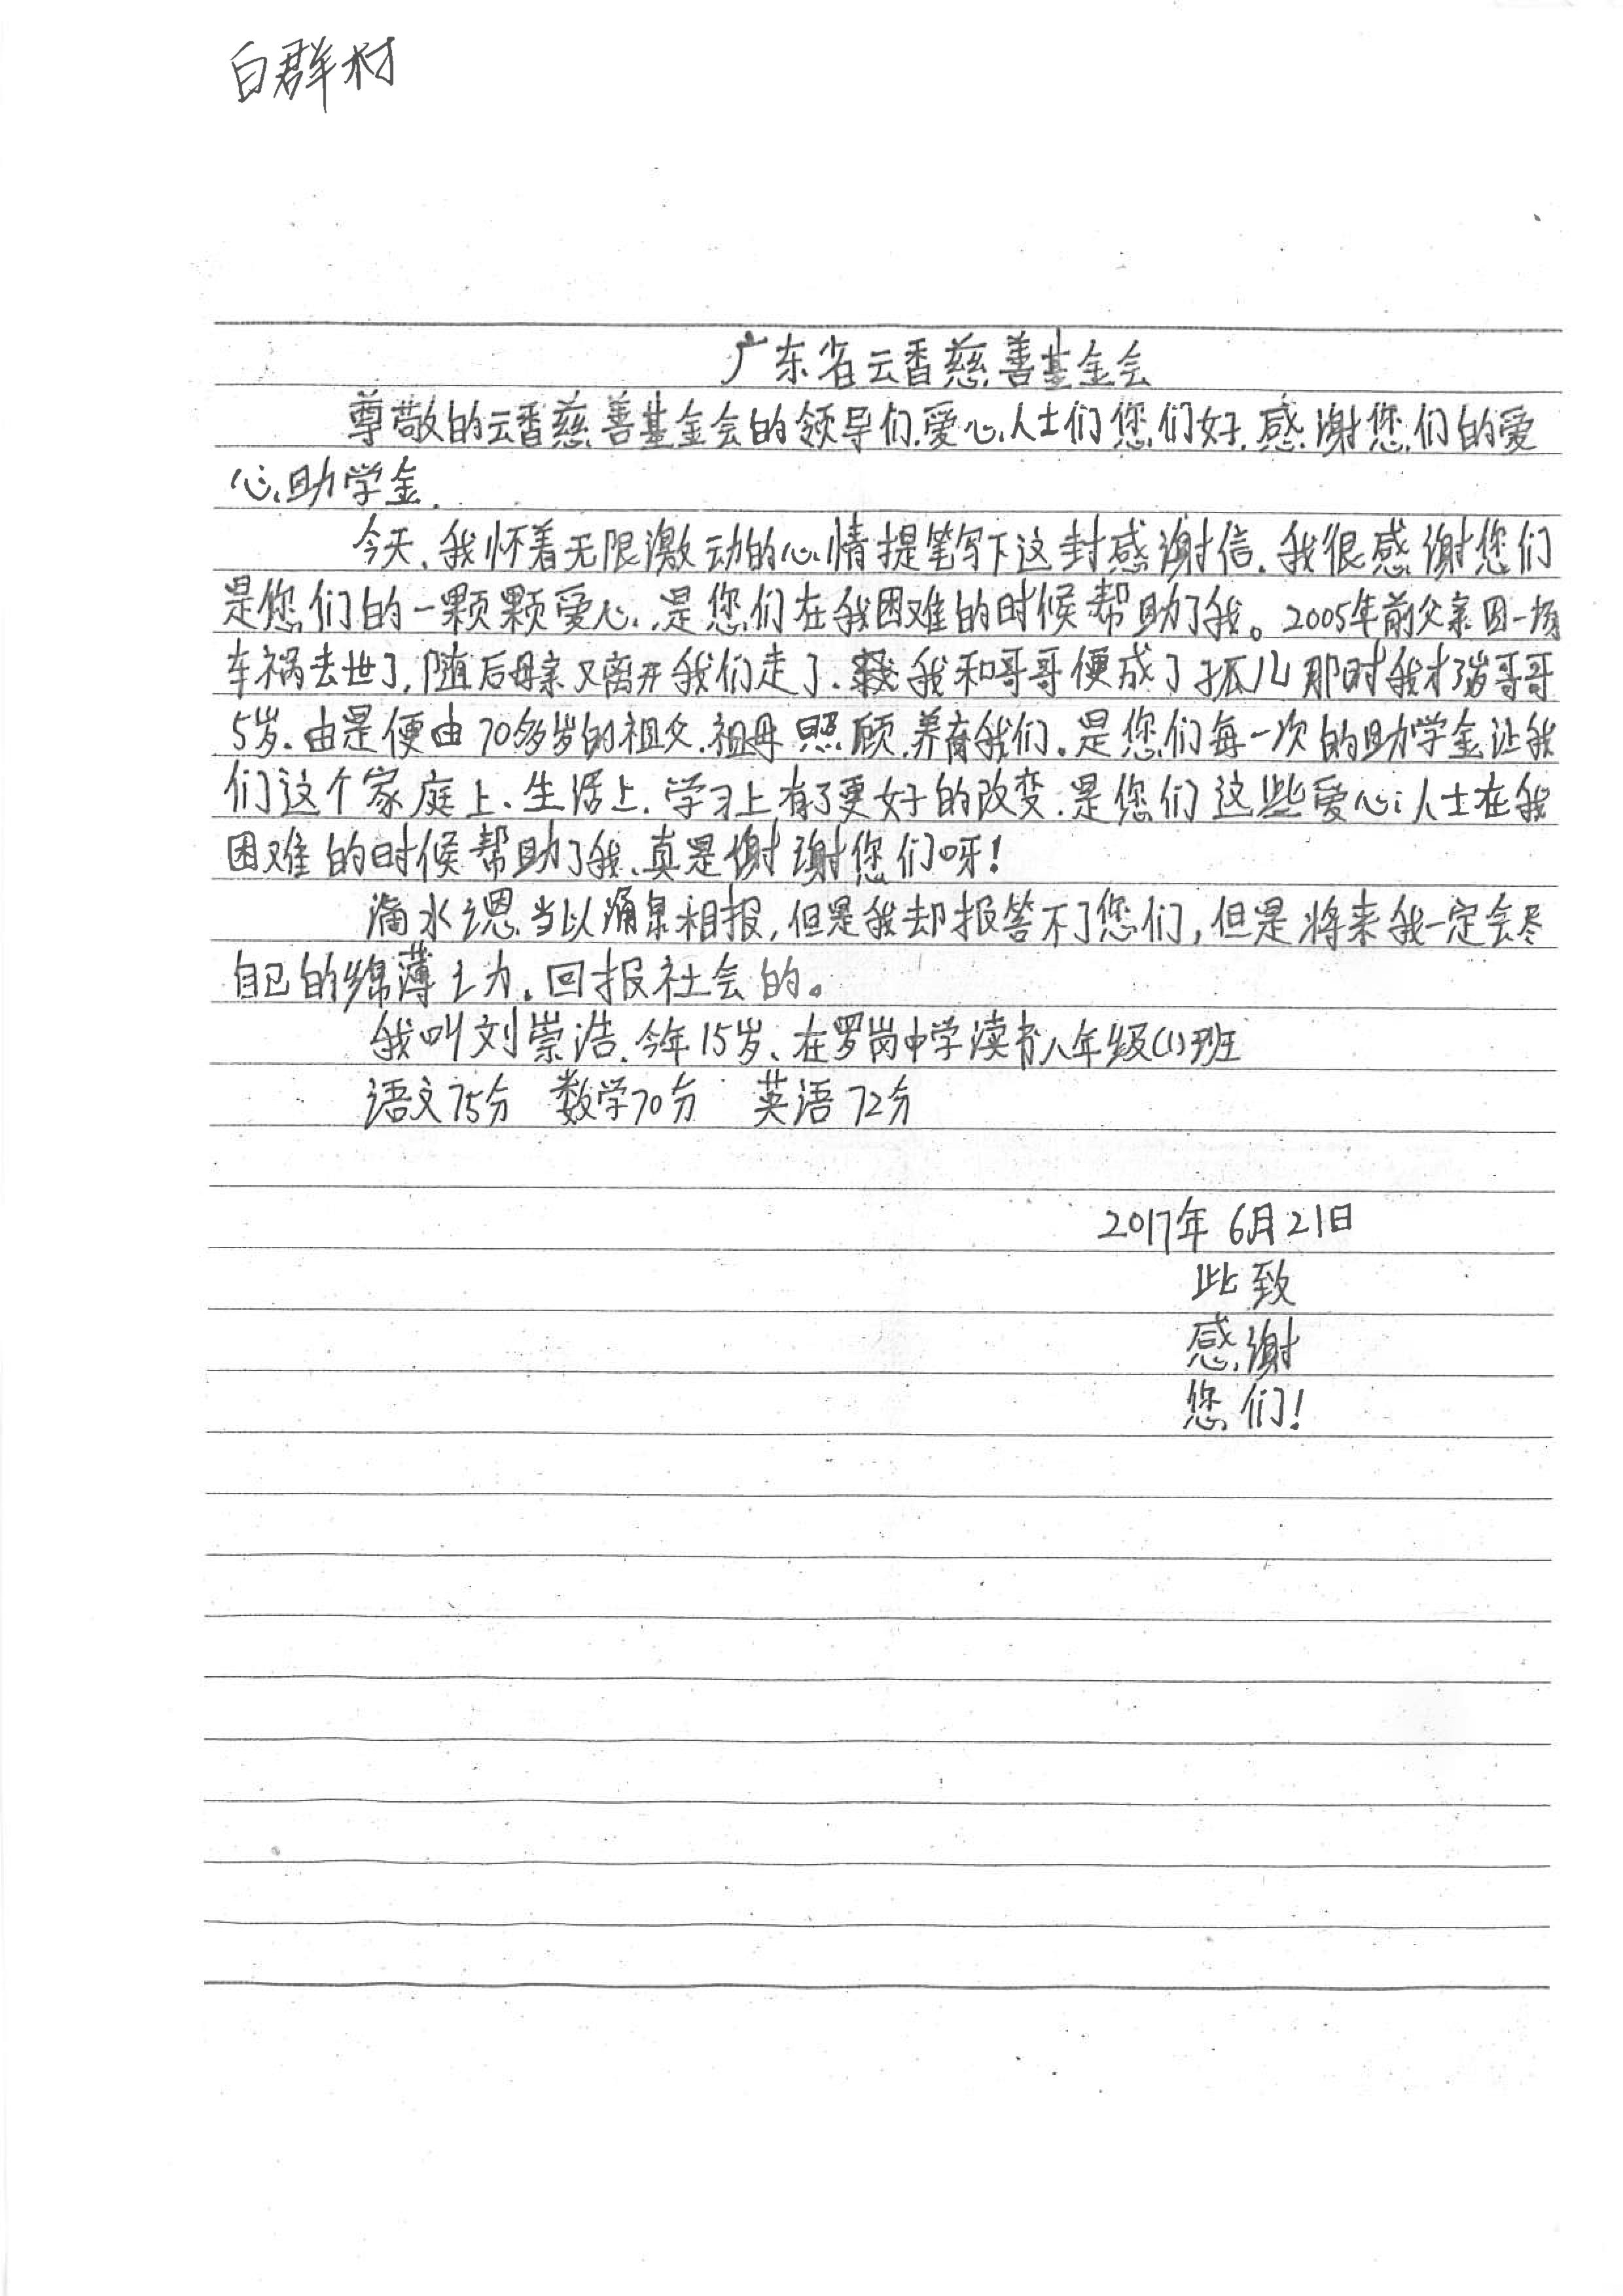 白群村
广东省云香慈善基金会
尊敬的云香慈善基金会的领导们.爱心人士们您们好.感谢您们的爱
心助学金.
今天.我怀着无限激动的心情提笔写下这封感谢信.我很感谢您们
是您们的一颗颗爱心.是您们在我困难的时候帮助了我。2005年前父亲因一场
车祸去世了,随后母亲又离开我们走了.我和哥哥便成了孤儿那时我才3岁哥哥
5岁.由是便由70多岁的祖父.祖母照顾.养育我们。是您们每一次的助学金让我
们这个家庭上、生活上.学习上有了更好的改变.是您们这些爱心人士在我
困难的时候帮助了我、真是谢谢您们呀!
滴水之恩当以涌泉相报,但是我却报答不了您们,但是将来我一定会尽
自己的绵薄之力.回报社会的。
我叫刘崇浩.今年15岁、在罗岗中学读书八年级(1)班
语文75分 数学70分 英语72分
2017年6月21日
此致
感谢
您们!